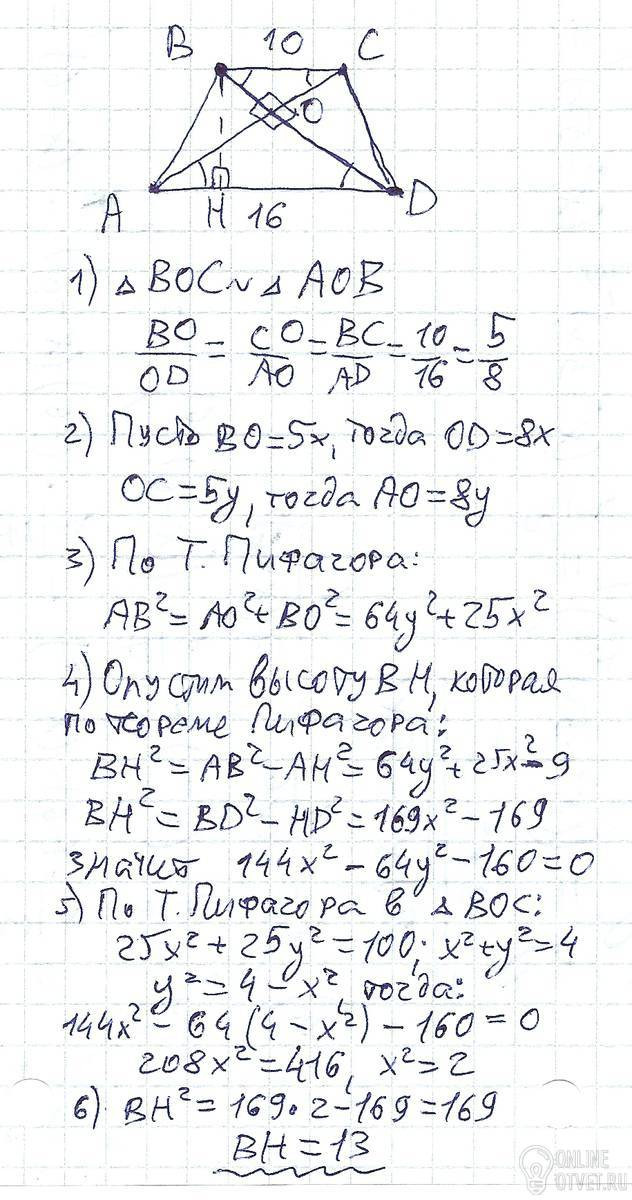 B 10 C
O
A H 16 D
1) △ BOC ~ △ AOB
BO/OD = CO/AO = BC/AD = 10/16 = 5/8
2) Пусть BO=5x, тогда OD=8x
OC=5y, тогда AO=8y
3) По Т. Пифагора:
AB²=AO²+BO²=64y²+25x²
4) Опустим высоту BH, которая
по теореме Пифагора:
BH²=AB²-AH²=64y²+25x²-9
BH²=BD²-HD²=169x²-169
значит 144x²-64y²-160=0
5) По Т. Пифагора в △ BOC:
25x²+25y²=100; x²+y²=4
y²=4-x², тогда:
144x²-64(4-x²)-160=0
208x²=416, x²=2
6) BH²=169·2-169=169
BH=13
ONLINE
OTVET.RU